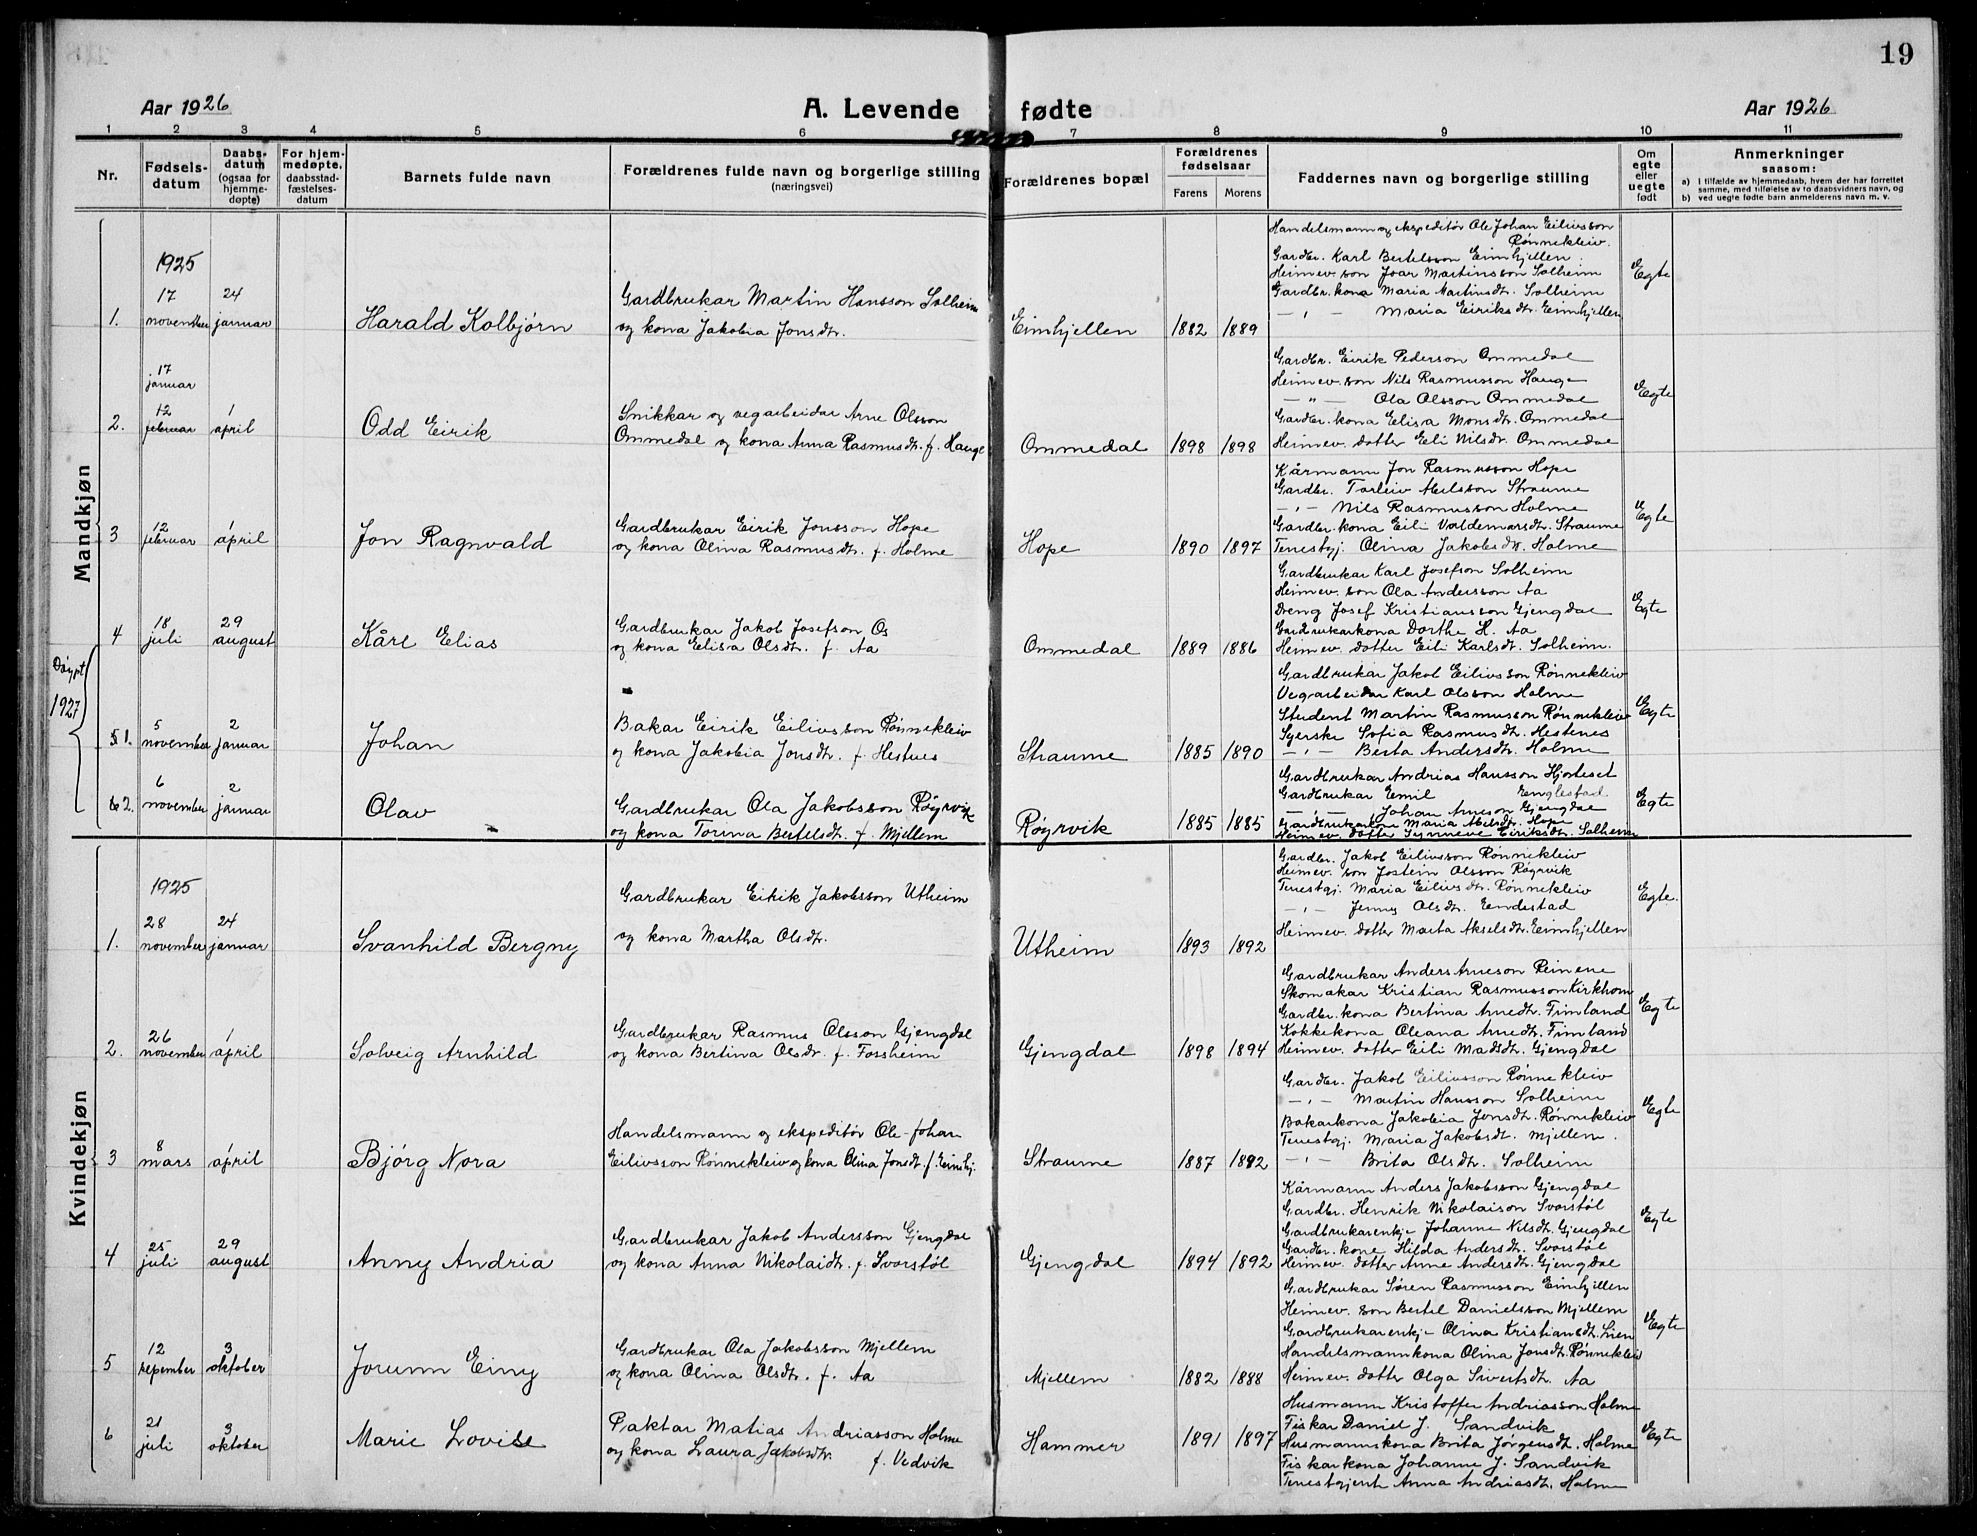 19
Aar 1926
A. Levende fødte
Aar 1926
1 2 3 4 5 6 7 8 9 10 11
Nr.
Fødsels-
datum
Daabs-
datum
(ogsaa for
hjemme-
døpte)
For hjem-
medøpte,
daabsstad-
fæstelses-
datum
Barnets fulde navn
Forældrenes fulde navn og borgerlige stilling
(næringsvei)
Forældrenes bopæl
Forældrenes
fødselsaar
Farens
Morens
Faddernes navn og borgerlige stilling
Om
egte
eller
uegte
født
Anmerkninger
saasom:
a) I tilfælde av hjemmedaab, hvem der har forrettet
samme, med tilføielse av to daabsvidners navn, og
b) ved uegte fødte barn anmelderens navn m. v.
Mandkjøn
1925
1.
17
november
24
januar
Harald Kolbjørn
Gardbrukar Martin Hansson Solheim
og kona Jakobia Jonsdtr.
Eimhjellen
1882 1889
Handelsmann og ekspeditör Ole Johan Eiliusson
Rönnekleiv.
Gardbr. Karl Bertelsson Eimhjellen
Heimev. son Joar Martinsson Solheim
Gardbr. kona Maria Martinsdt. Solheim
— " — Maria Eiriksdtr. Eimhjellen
Egte
17
januar
2.
12
februar
1
april
Odd Eirik
Snikkar og vegarbeidar Arne Olsson
Ommedal og kona Anna Rasmusdtr. f. Hauge
Ommedal
1898 1898
Gardbr. Eirik Pederson Ommedal
Heimev. son Nils Rasmusson Hauge
— " — Ola Olsson Ommedal
Gardbr. kona Elisa Monsdtr. Ommedal
Heimev. dotter Eli Nilsdr. Ommedal
Egte
3
12
februar
1
april
Jon Ragnvald
Gardbrukar Eirik Jonsson Hope
og kona Olina Rasmusdtr. f. Holme
Hope
1890 1897
Kårmann Jon Rasmusson Hope
Gardbr. Torleiv Abelsson Straume
— " — Nils Rasmusson Holme
Gardbr. kona Eili Valdemarsdt. Straume
Tenestgj. Olina Jakobsdtr. Holme
Egte
4
18
juli
29
august
Kåre Elias
Gardbrukar Jakob Josefson Os
og kona Elisa Olsdtr. f. Aa
Ommedal
1889 1886
Gardbrukar Karl Josefson Solheim
Heimev. son Ola Andersson Aa
Dreng Josef Kristiansson Gjengdal
Gardbrukarkona Dorthe H. Aa
Heimev. dotter Eili Karlsdt. Solheim.
Egte
Døypt
1927
5 1.
5
november
2
januar
Johan
Bakar Eirik Eiliusson Rönnekleiv
og kona Jakobia Jonsdtr. f. Hestnes
Straume
1885 1890
Gardbrukar Jakob Eiliusson Rönnekleiv
Vegarbeidar Karl Olsson Holme
Student Martin Rasmusson Rönnekleiv
Syerske Sofia Rasmusdt. Hestenes
— " — Berta Andersdtr. Holme
Egte
6 2.
6
november
2
januar
Olav
Gardbrukar Ola Jakobsson Röyrvik
og kona Torina Bertelsdtr. f. Mjellem
Röyrvik
1885 1885
Gardbrukar Andrias Hansson Hjorteset
Gardbrukar Emil Englestad.
— " — Johan Arneson Gjengdal
Gardbrukarkona Maria Abelsdtr. Hope
Heimev. dotter Synneve Eiriksdtr. Solheim
Egte
Kvindekjøn
1925
1.
28
november
24
januar
Svanhild Bergny
Gardbrukar Eirik Jakobsson Utheim
og kona Martha Olsdtr.
Utheim
1893 1892
Gardbr. Jakob Eiliusson Rönnekleiv
Heimev. son Jostein Olsson Röyrvik
Tenestgj. Maria Eiliusdtr. Rönnekleiv
— " — Jenny Olsdtr. Endestad
Heimev. dotter Marta Akselsdtr. Eimhjellen
Egte.
2.
26
november
1
april
Solveig Arnhild
Gardbrukar Rasmus Olsson Gjengdal
og kona Bertina Olsdr. f. Fossheim
Gjengdal
1898 1894
Gardbrukar Anders Arneson Reinene
Skomakar Kristian Rasmusson Kirkhorn
Gardbr. kona Bertina Arnedtr. Fimland
Kokkekona Oleana Arnedtr. Fimland
Heimev. dotter Eili Madsdtr. Gjengdal
Egte
3
8
mars
1
april
Bjørg Nora
Handelsmann og ekspeditör Ole-Johan
Eiliusson Rönnekleiv og kona Olina Jonsdt. f. Eimhj.
Straume
1887 1892
Gardbr. Jakob Eiliusson Rönnekleiv
— " — Martin Hansson Solheim
Bakarkona Jakobia Jonsdtr. Rönnekleiv
Tenestgj. Maria Jakobsdt. Mjellem.
— " — Brita Olsdtr. Solheim
Egte
4
25
juli
29
august
Anny Andria
Gardbrukar Jakob Andersson Gjengdal
og kona Anna Nikolaidtr. f. Svorstöl
Gjengdal
1894 1892
Kårmann Anders Jakobsson Gjengdal
Gardbr. Henrik Nikolaison Svorstöl
Gardbrukarenkje Johanne Nilsdtr. Gjengdal
Gardbr. kone Hilda Andersdtr. Svorstöl
Heimev. dotter Anne Andersdtr. Gjengdal
Egte
5
12
september
3
oktober
Jorunn Einy
Gardbrukar Ola Jakobsson Mjellem
og kona Olina Olsdtr. f. Aa
Mjellem
1882 1888
Gardbrukar Søren Rasmusson Eimhjellen
Heimev. son Bertel Danielsson Mjellem
Gardbrukarenkje Olina Kristiansdt. Lien
Handelsmannkona Olina Jonsdtr. Rönnekleiv
Heimev. dotter Olga Sivertsdtr. Aa
Egte
6
21
juli
3
oktober
Marie Lovise
Paktar Matias Andriasson Holme
og kona Laura Jakobsdtr.
f. Vedvik
Hammer
1891 1897
Husmann Kristoffer Andriasson Holme
Fiskar Daniel J. Sandvik
Husmannskona Brita Jörgensdt. Holme
Fiskarkona Johanne J. Sandvik
Tenestgjente Anna Andriasdt. Holme
Egte